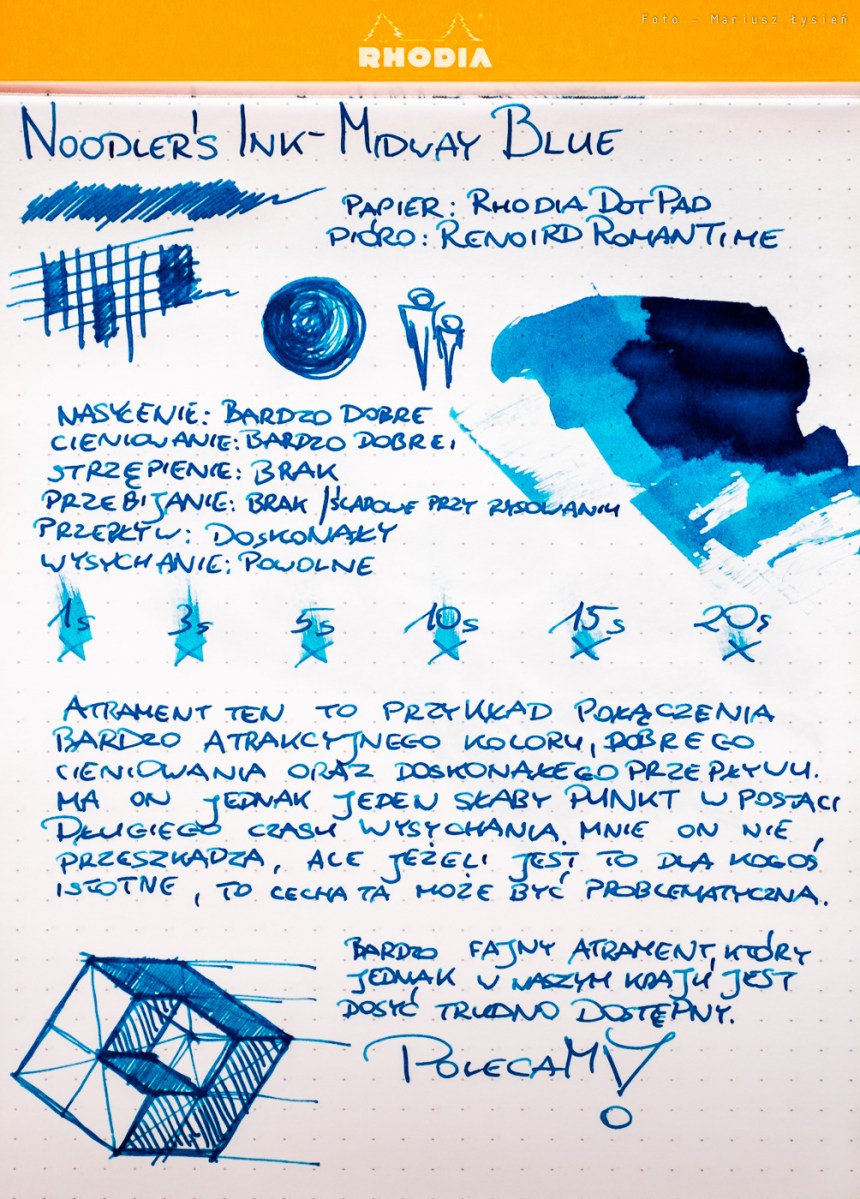 Foto - Mariusz Łysień
RHODIA
NOODLER'S INK - MIDWAY BLUE
PAPIER: RHODIA DOTPAD
PIÓRO: RENOIRD ROMANTIME
NASYCENIE: BARDZO DOBRE
CIENIOWANIE: BARDZO DOBRE.
STRZĘPIENIE: BRAK
PRZEBIJANIE: BRAK / ŚLADOWE PRZY RYSOWANIU
PRZEPŁYW: DOSKONAŁY
WYSYCHANIE: POWOLNE
1s 3s 5s 10s 15s 20s
ATRAMENT TEN TO PRZYKŁAD POŁĄCZENIA
BARDZO ATRAKCYJNEGO KOLORU, DOBREGO
CIENIOWANIA ORAZ DOSKONAŁEGO PRZEPŁYWU.
MA ON JEDNAK JEDEN SŁABY PUNKT W POSTACI
DŁUGIEGO CZASU WYSYCHANIA. MNIE ON NIE
PRZESZKADZA, ALE JEŻELI JEST TO DLA KOGOŚ
ISTOTNE, TO CECHA TA MOŻE BYĆ PROBLEMATYCZNA.
BARDZO FAJNY ATRAMENT, KTÓRY
JEDNAK W NASZYM KRAJU JEST
DOSYĆ TRUDNO DOSTĘPNY.
POLECAM!